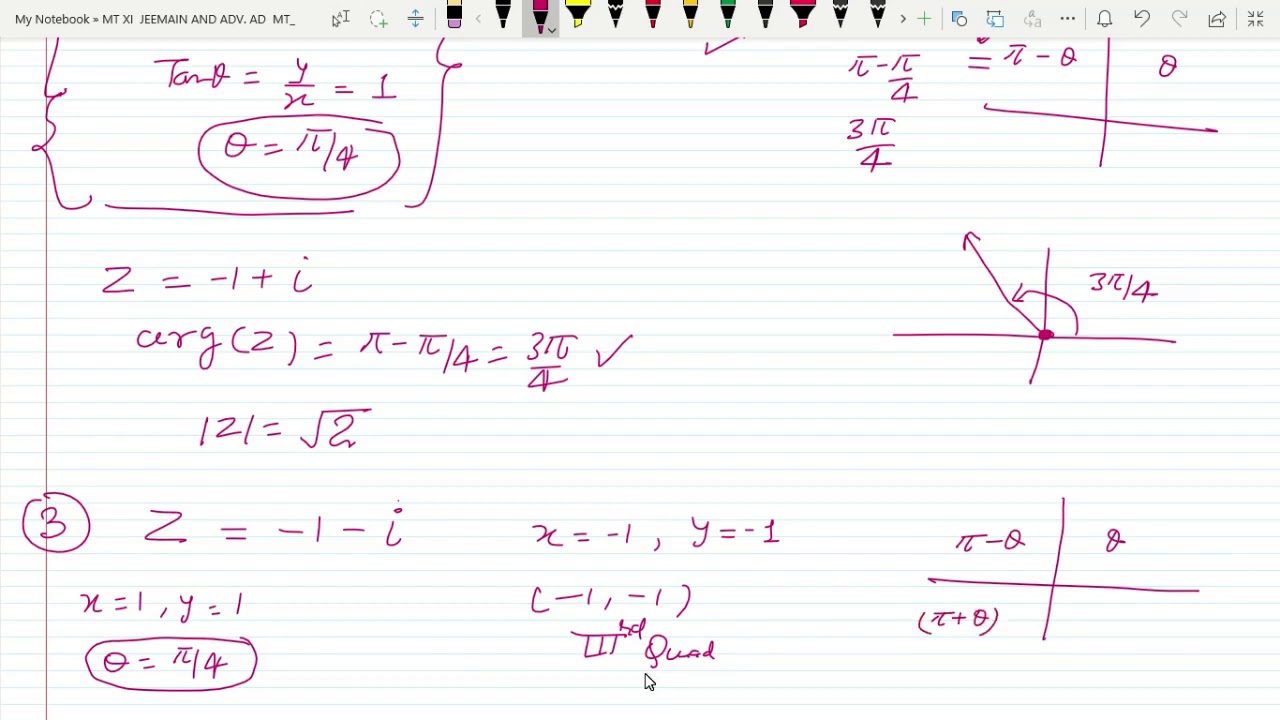 My Notebook » MT XI JEEMAIN AND ADV. AD MT_
Tanθ = y/x = 1
θ = π/4
π - π/4
3π/4
= π - θ
θ
z = -1 + i
arg(z) = π - π/4 = 3π/4 ✓
|z| = √2
3π/4
3
Z = -1 - i
x = -1 , y = -1
π-θ
θ
x = 1 , y = 1
(-1, -1)
(π+θ)
θ = π/4
III rd Quad